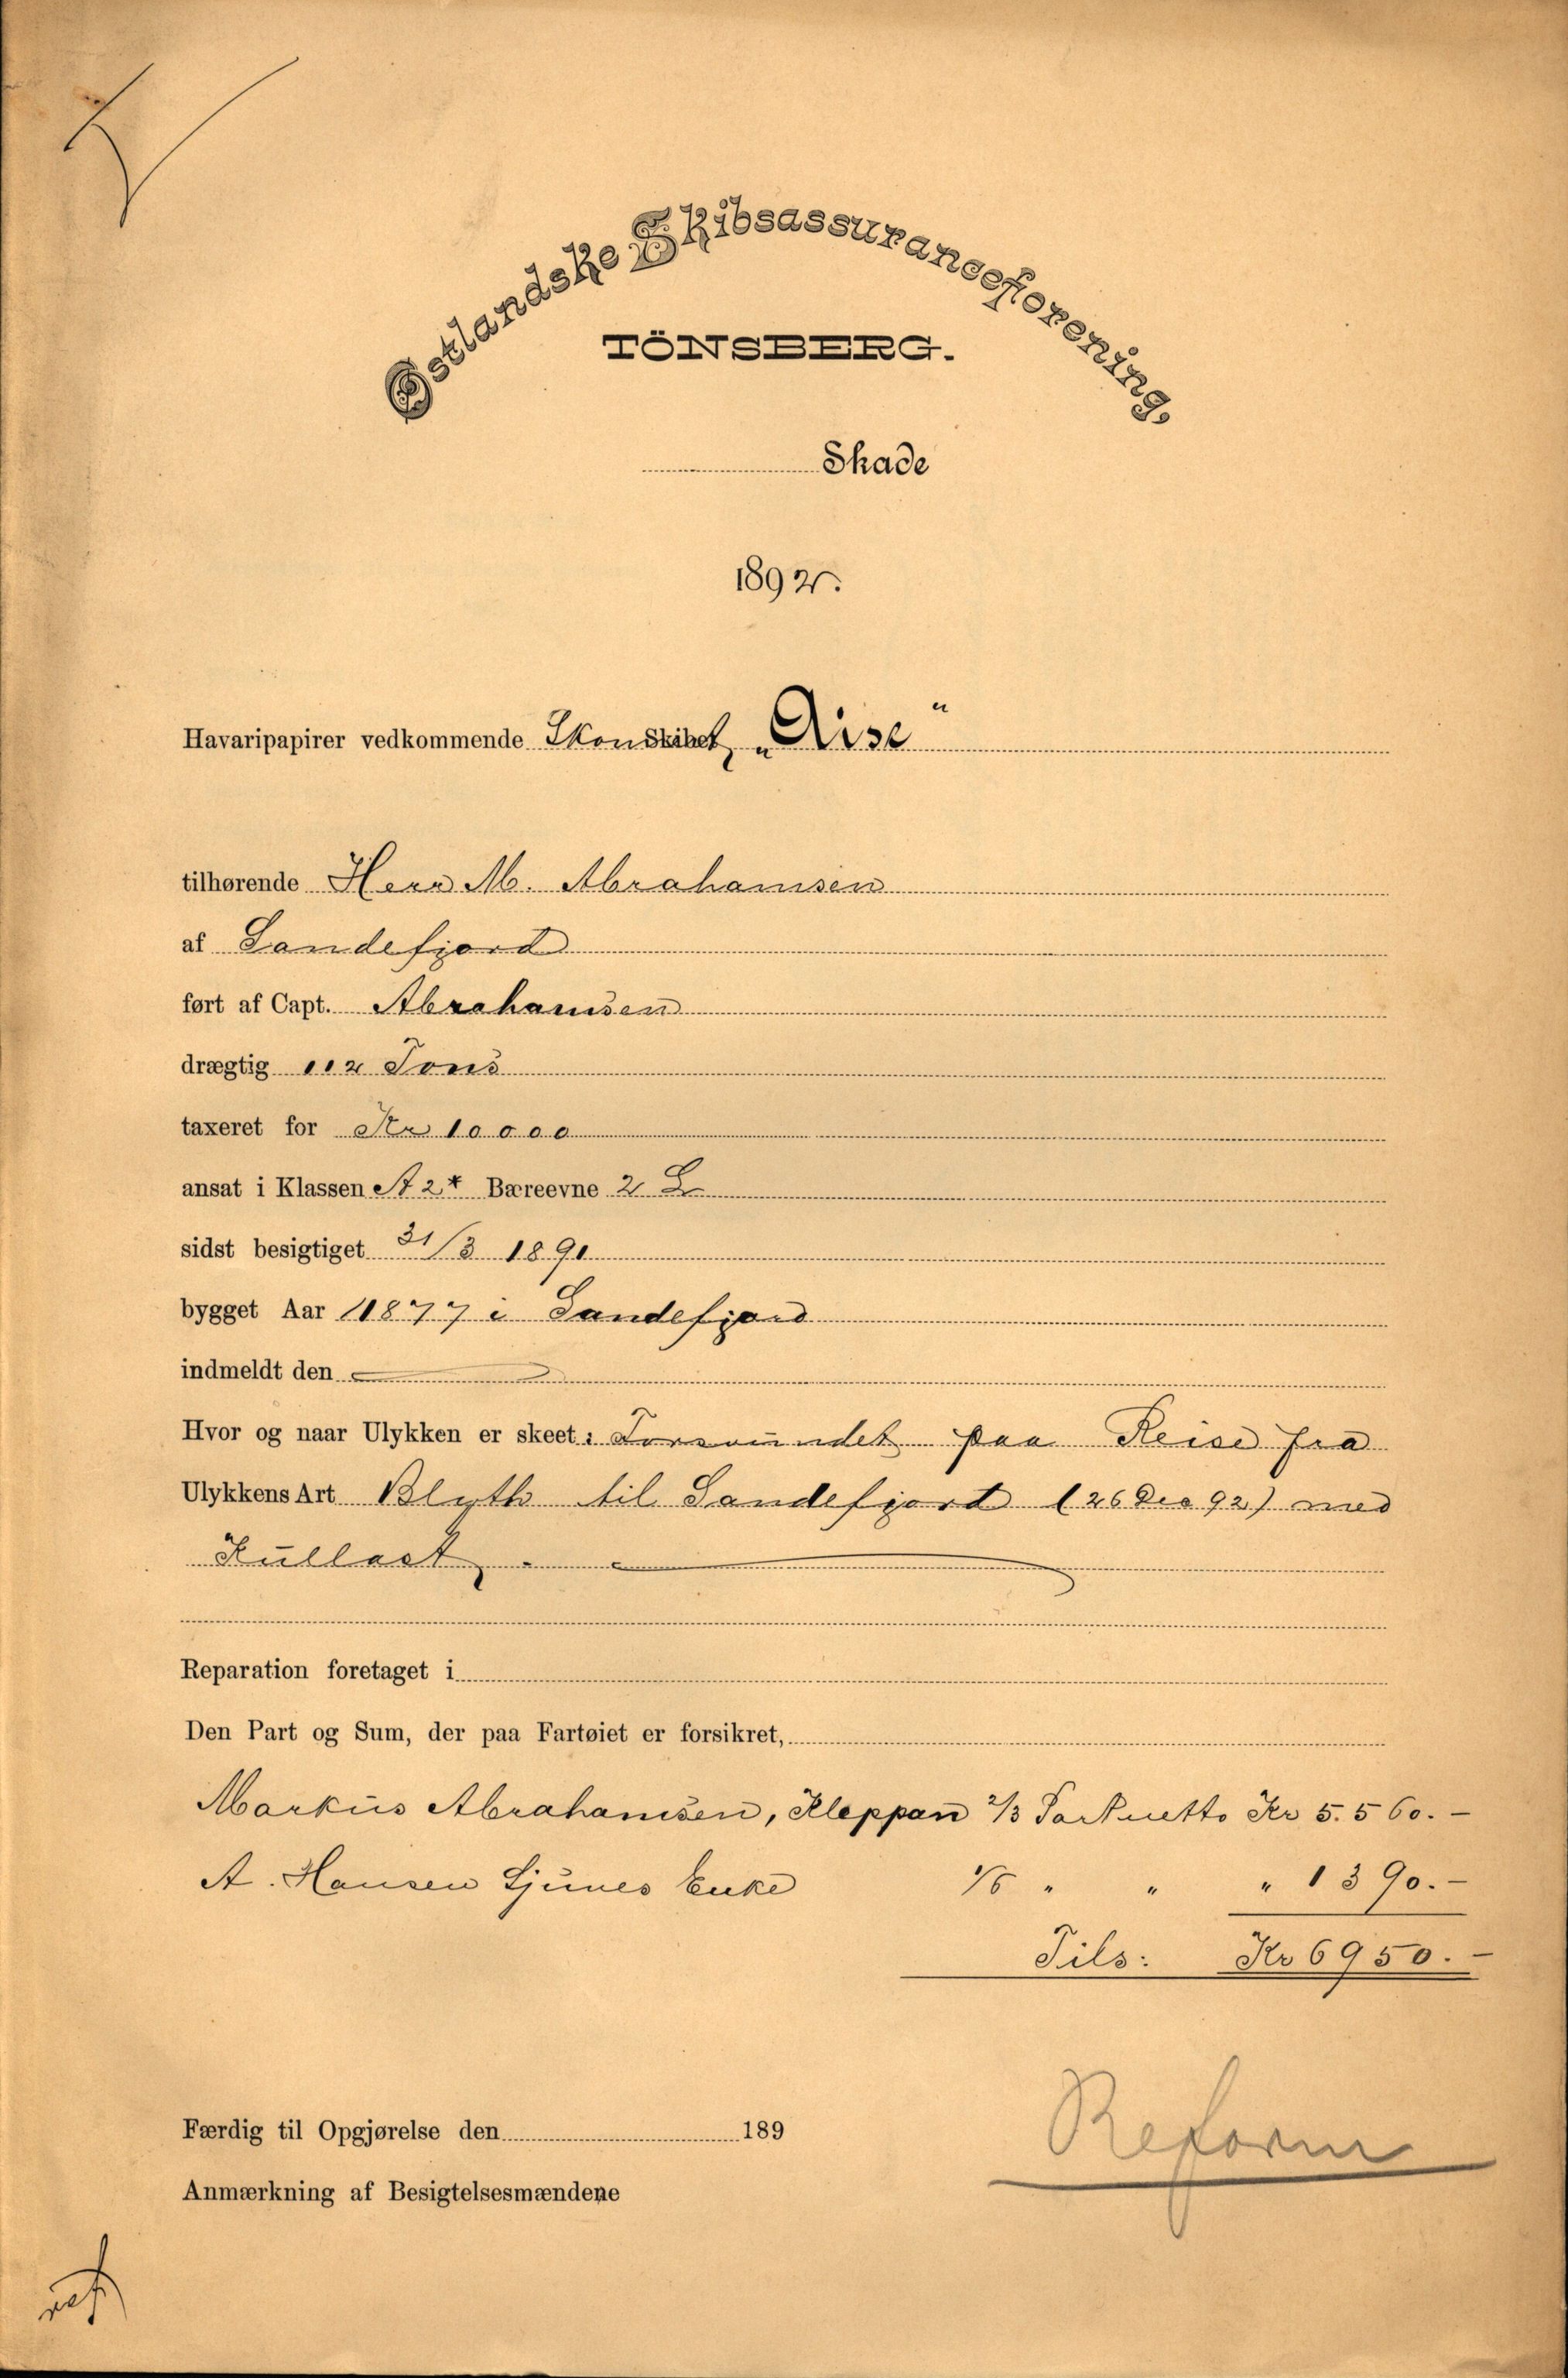 Østlandske Skibsassuranceforening,
TÖNSBERG.
Skade
1892.
Havaripapirer vedkommende Skonskibet, „Aise“
tilhørende Herr M. Abrahamsen
af Sandefjord
ført af Capt. Abrahamsen
drægtig 112 Tons
taxeret for Kr 10000
ansat i Klassen A 2* Bæreevne 2 L
sidst besigtiget 31/3 1890
bygget Aar 1877 i Sandefjord
indmeldt den
Hvor og naar Ulykken er skeet: Forsvundet paa Reise fra
Ulykkens Art Blyth til Sandefjord (26 Dec 92) med
Kullast
Reparation foretaget i
Den Part og Sum, der paa Fartøiet er forsikret,
Markus Abrahamsen, Kleppan 2/3 Part netto Kr 5.560.-
A. Hansen Sjunes Enke 1/6 " " " 1390.-
Tils: Kr 6950.-
Færdig til Opgjørelse den 189
Reform
Anmærkning af Besigtelsesmændene
ref